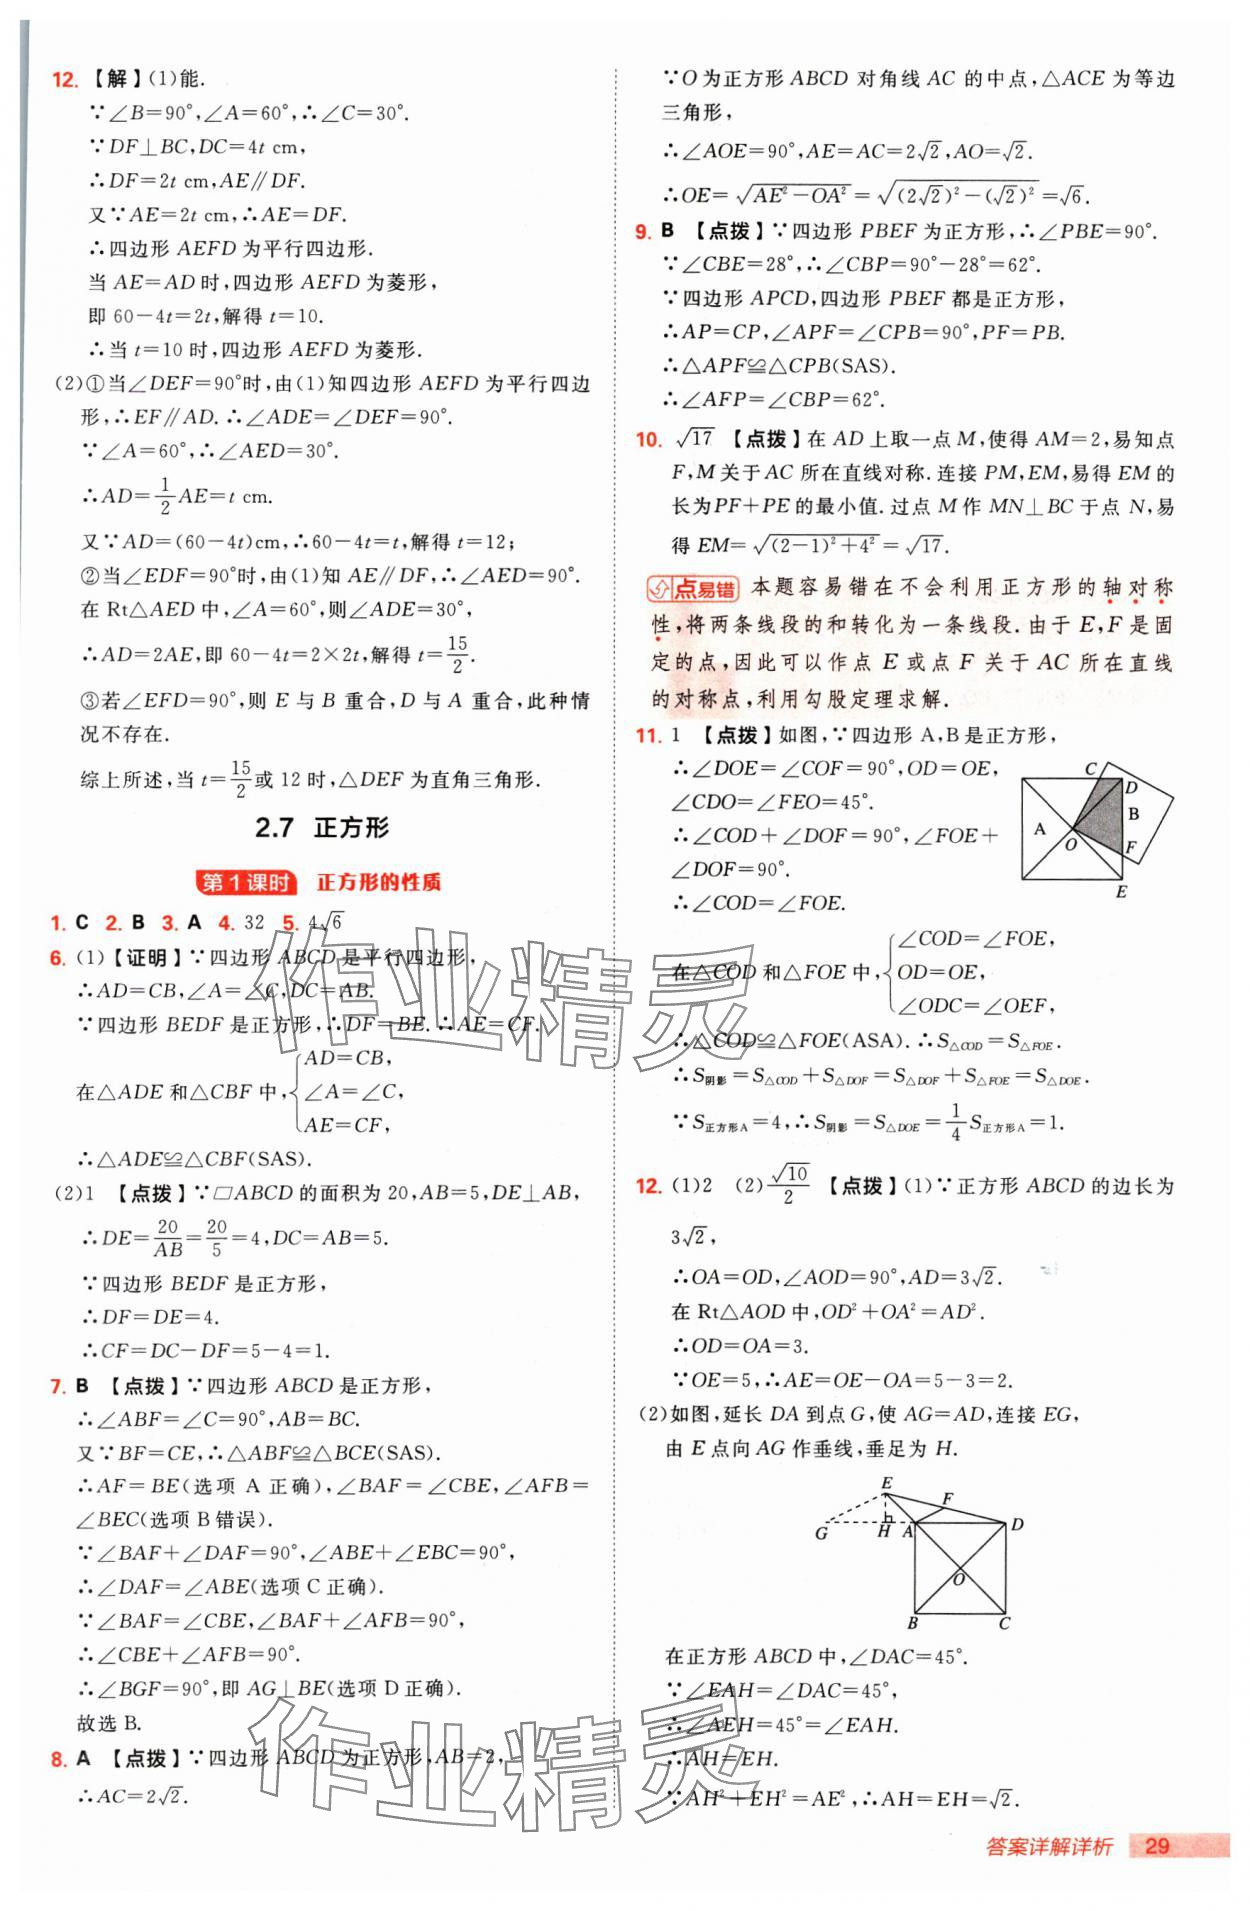 12. 【解】(1)能.
∵∠B=90°,∠A=60°,∴∠C=30°.
∵DF⊥BC,DC=4t cm,
∴DF=2t cm,AE∥DF.
又∵AE=2t cm,∴AE=DF.
∴四边形 AEFD 为平行四边形.
当 AE=AD 时,四边形 AEFD 为菱形,
即 60-4t=2t,解得 t=10.
∴当 t=10 时,四边形 AEFD 为菱形.
(2)①当∠DEF=90°时,由(1)知四边形 AEFD 为平行四边
形,∴EF∥AD.∴∠ADE=∠DEF=90°.
∵∠A=60°,∴∠AED=30°.
∴AD=1/2 AE=t cm.
又∵AD=(60-4t)cm,∴60-4t=t,解得 t=12;
②当∠EDF=90°时,由(1)知 AE∥DF,∴∠AED=90°.
在 Rt△AED 中,∠A=60°,则∠ADE=30°,
∴AD=2AE,即 60-4t=2×2t,解得 t=15/2.
③若∠EFD=90°,则 E 与 B 重合,D 与 A 重合,此种情
况不存在.
综上所述,当 t=15/2 或 12 时,△DEF 为直角三角形.
2.7 正方形
第1课时 正方形的性质
1. C 2. B 3. A 4. 32 5. 4√6
6. (1)【证明】∵四边形 ABCD 是平行四边形,
∴AD=CB,∠A=∠C,DC=AB.
∵四边形 BEDF 是正方形,∴DF=BE.∴AE=CF.
在△ADE 和△CBF 中,{AD=CB,
∠A=∠C,
AE=CF,
∴△ADE≌△CBF(SAS).
(2)1 【点拨】∵▱ABCD 的面积为 20,AB=5,DE⊥AB,
∴DE=20/AB=20/5=4,DC=AB=5.
∵四边形 BEDF 是正方形,
∴DF=DE=4.
∴CF=DC-DF=5-4=1.
7. B 【点拨】∵四边形 ABCD 是正方形,
∴∠ABF=∠C=90°,AB=BC.
又∵BF=CE,∴△ABF≌△BCE(SAS).
∴AF=BE(选项 A 正确),∠BAF=∠CBE,∠AFB=
∠BEC(选项 B 错误).
∵∠BAF+∠DAF=90°,∠ABE+∠EBC=90°,
∴∠DAF=∠ABE(选项 C 正确).
∵∠BAF=∠CBE,∠BAF+∠AFB=90°,
∴∠CBE+∠AFB=90°.
∴∠BGF=90°,即 AG⊥BE(选项 D 正确).
故选 B.
8. A 【点拨】∵四边形 ABCD 为正方形,AB=2,
∴AC=2√2.
∵O 为正方形 ABCD 对角线 AC 的中点,△ACE 为等边
三角形,
∴∠AOE=90°,AE=AC=2√2,AO=√2.
∴OE=√(AE²-OA²)=√((2√2)²-(√2)²)=√6.
9. B 【点拨】∵四边形 PBEF 为正方形,∴∠PBE=90°.
∵∠CBE=28°,∴∠CBP=90°-28°=62°.
∵四边形 APCD,四边形 PBEF 都是正方形,
∴AP=CP,∠APF=∠CPB=90°,PF=PB.
∴△APF≌△CPB(SAS).
∴∠AFP=∠CBP=62°.
10. √17 【点拨】在 AD 上取一点 M,使得 AM=2,易知点
F,M 关于 AC 所在直线对称.连接 PM,EM,易得 EM 的
长为PF+PE 的最小值.过点 M 作 MN⊥BC 于点 N,易
得 EM=√((2-1)²+4²)=√17.
点易错 本题容易错在不会利用正方形的轴对称
性,将两条线段的和转化为一条线段.由于 E,F 是固
定的点,因此可以作点 E 或点 F 关于 AC 所在直线
的对称点,利用勾股定理求解.
11. 1 【点拨】如图,∵四边形 A,B 是正方形,
∴∠DOE=∠COF=90°,OD=OE,
∠CDO=∠FEO=45°.
∴∠COD+∠DOF=90°,∠FOE+
∠DOF=90°.
∴∠COD=∠FOE.
C
D
A
B
O
F
E
在△COD 和△FOE 中,{∠COD=∠FOE,
OD=OE,
∠ODC=∠OEF,
∴△COD≌△FOE(ASA).∴S△COD=S△FOE.
∴S阴影=S△COD+S△DOF=S△DOF+S△FOE=S△DOE.
∵S正方形A=4,∴S阴影=S△DOE=1/4 S正方形A=1.
12. (1)2 (2)√10/2 【点拨】(1)∵正方形 ABCD 的边长为
3√2,
∴OA=OD,∠AOD=90°,AD=3√2.
在 Rt△AOD 中,OD²+OA²=AD².
∴OD=OA=3.
∵OE=5,∴AE=OE-OA=5-3=2.
(2)如图,延长 DA 到点G,使 AG=AD,连接 EG,
由 E 点向 AG 作垂线,垂足为 H.
E
F
G
H
A
D
O
B
C
在正方形 ABCD 中,∠DAC=45°.
∵∠EAH=∠DAC=45°,
∴∠AEH=45°=∠EAH.
∴AH=EH.
∵AH²+EH²=AE²,∴AH=EH=√2.
答案详解详析 29
作业精灵
作业精灵